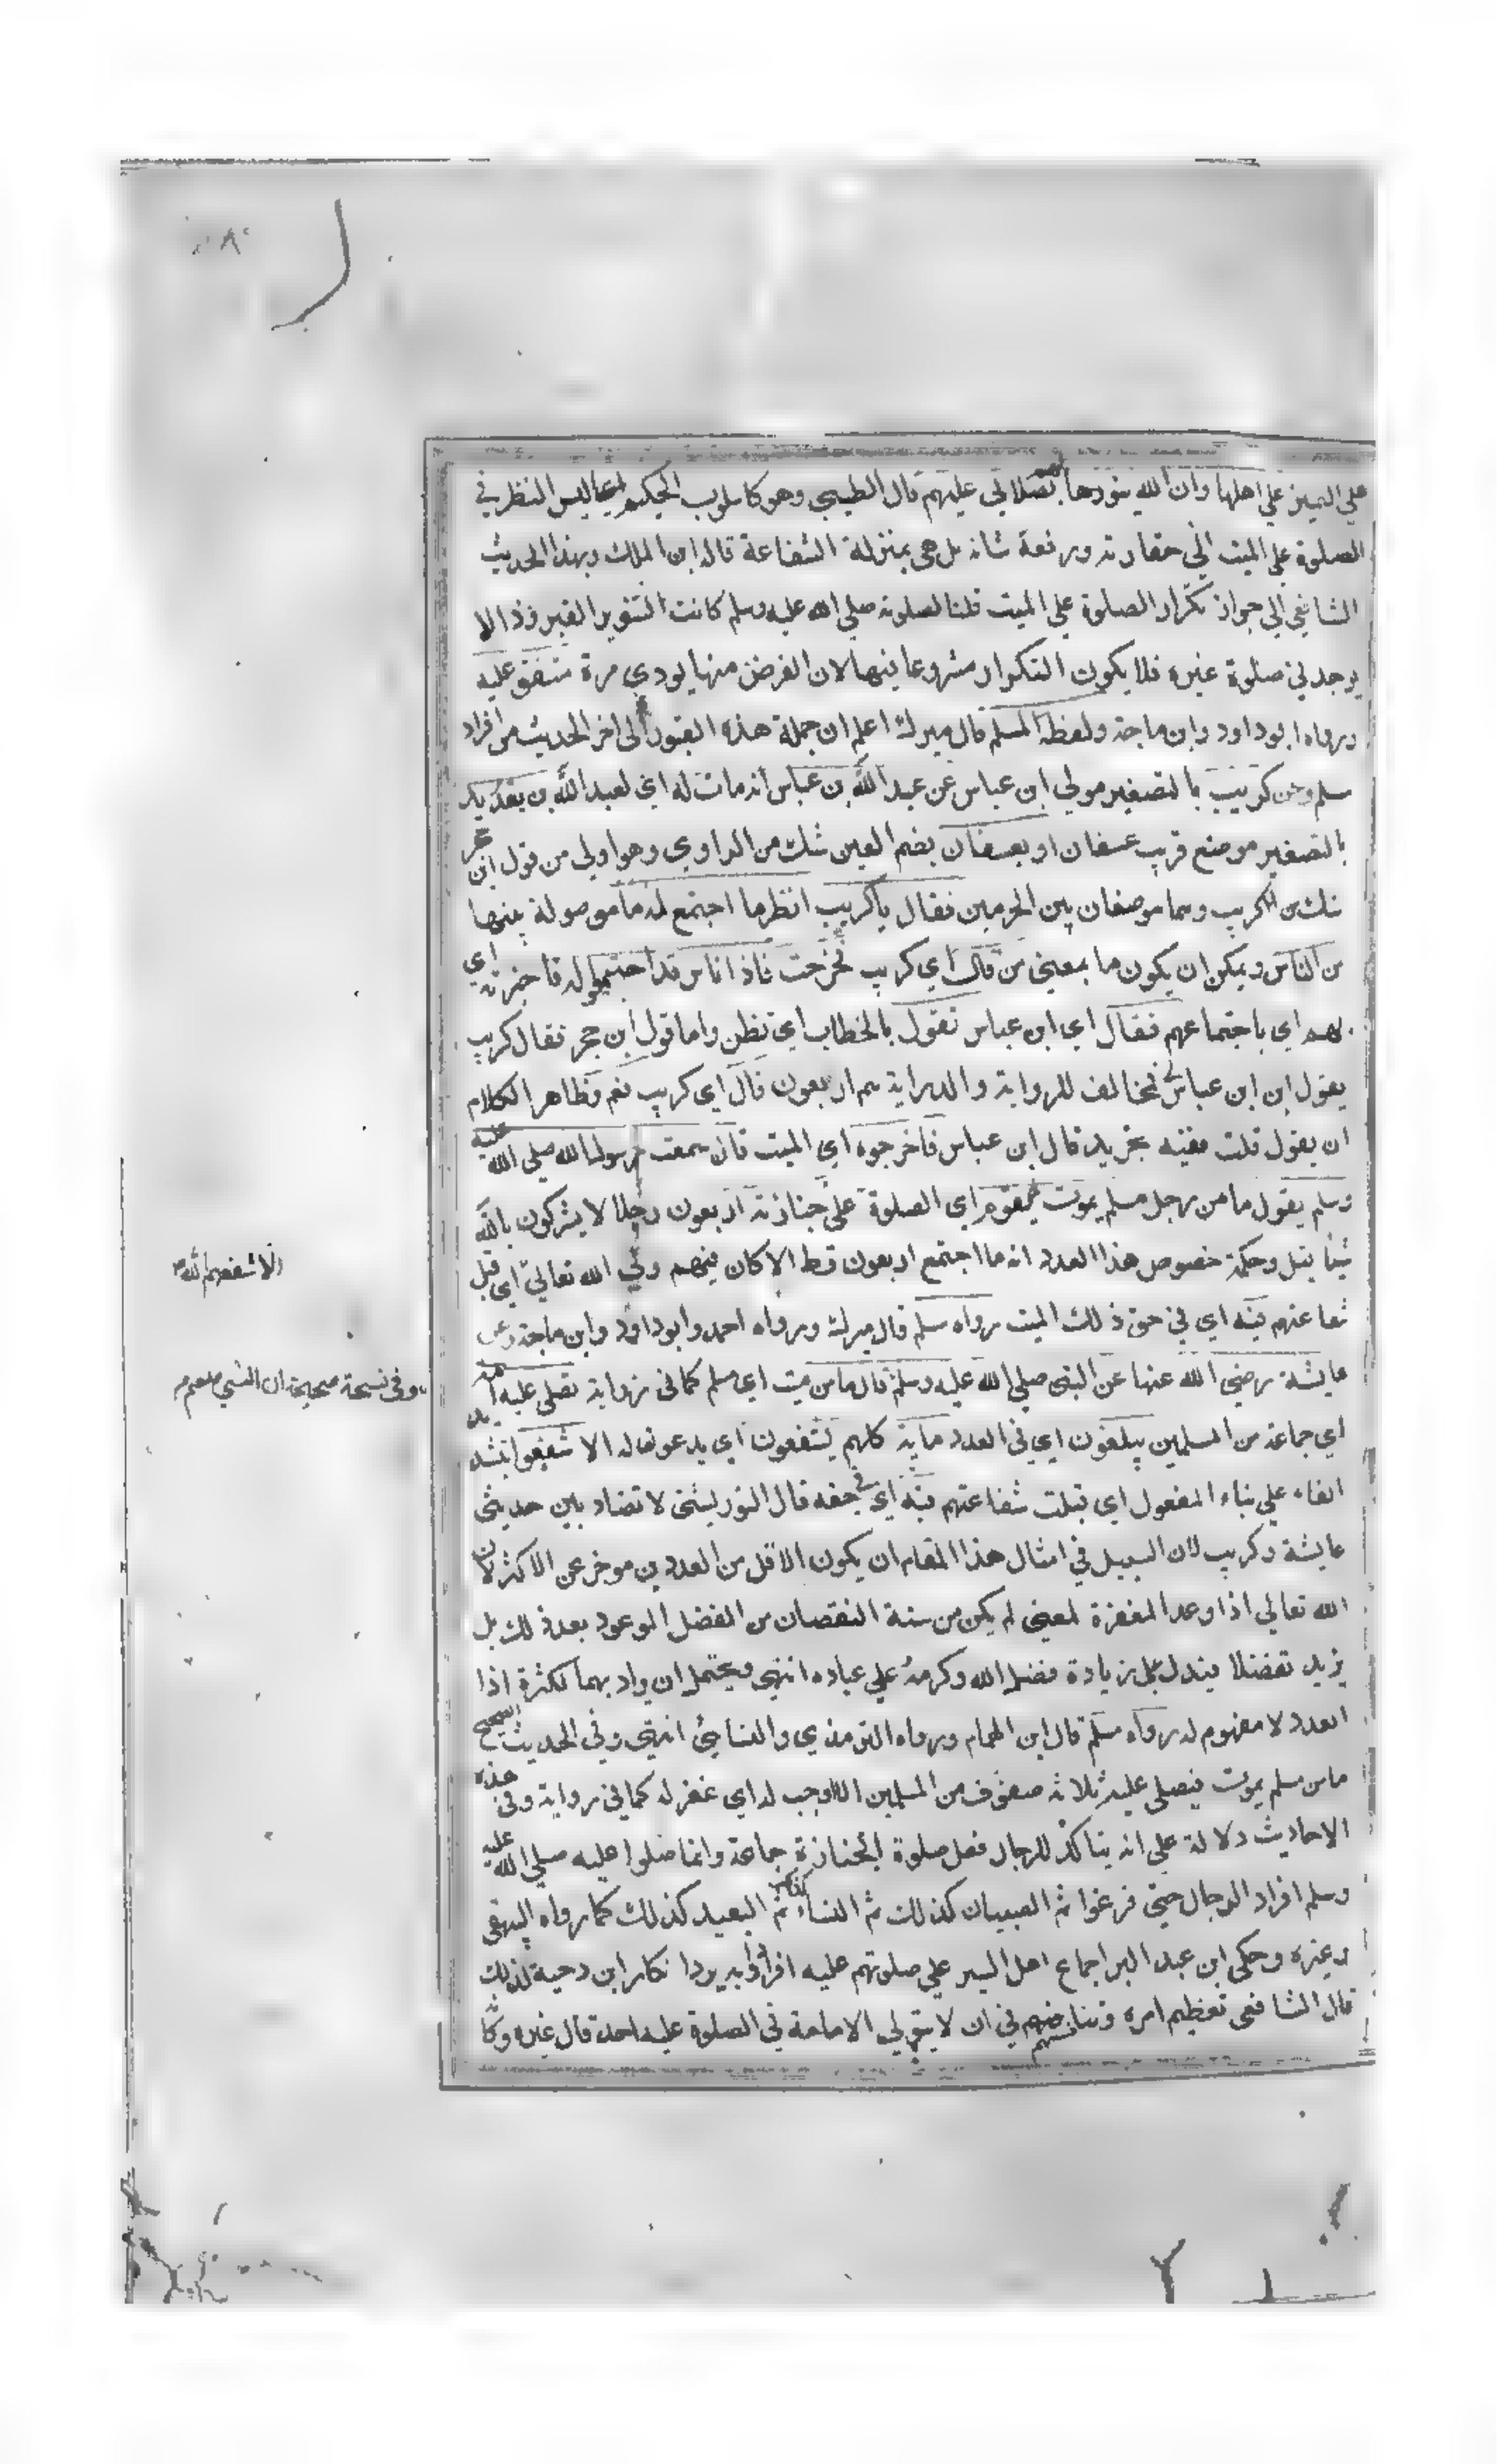 علي اهلها وان الله ينورها لهم بصلاتي عليهم قال الطيبي وهو كاسلوب الحكيم اي ليس النظر في
الصلوة علي الميت الي حقارته ورفعة شانه بل هي بمنزلة الشفاعة قال ابن الملك وبهذا الحديث
الشافعي الي جواز تكرار الصلوة علي الميت قلنا صلوته صلي الله عليه وسلم كانت لتنوير القبر وذا لا
يوجد في صلوة غيره فلا يكون التكرار مشروعا فيها لان الفرض منها يودي مرة متفق عليه
ورواه ابو داود وابن ماجة ولفظه لمسلم قال ميرك اعلم ان جملة هذه القبور الي اخر الحديث من افراد
مسلم وعن كريب بالتصغير مولي ابن عباس عن عبد الله بن عباس انه مات له اي لعبد الله بن بقديد
بالتصغير موضع قريب عسفان او بعسفان بضم العين شك من الراوي وهو اولي من قول ابن حجر
شك من كريب وهما موضعان بين الحرمين فقال يا كريب انظر ما اجتمع له ما موصولة مبنيها
من الناس ويمكن ان يكون ما بمعني من قال اي كريب فخرجت فاذا ناس قد اجتمعوا له فاخبرته اي
بهم اي باجتماعهم فقال اي ابن عباس تقول بالخطاب اي تظن واما قول ابن حجر فقال كريب
يقول اين ابن عباس فمخالف للرواية والدراية هم اربعون قال اي كريب نعم وظاهر الكلام
ان يقول قلت ففيه تجريد قال ابن عباس فاخرجوه اي الميت فاني سمعت رسول الله صلي الله عليه
وسلم يقول ما من رجل مسلم يموت فيقوم اي الصلوة علي جنازته اربعون رجلا لا يشركون بالله
شيئا قيل وحكمة خصوص هذا العدد انه ما اجتمع اربعون قط الا كان فيهم ولي الله تعالي اي قبل
الا شفعهم الله
شفاعتهم فيه اي في حق ذلك الميت رواه مسلم قال ميرك ورواه احمد وابو داود وابن ماجة وعن
عايشة رضي الله عنها عن النبي صلي الله عليه وسلم قال ما من ميت اي مسلم كما في رواية تصلي عليه امة
وفي نسخة صحيحة ان النبي صلعم
اي جماعة من المسلمين يبلغون اي في العدد ماية كلهم يشفعون اي يدعون له الا شفعوا بتشديد
الفاء علي بناء المفعول اي قبلت شفاعتهم فيه اي في حقه قال التوربشتي لا تضاد بين حديثي
عايشة وكريب لان السبيل في امثال هذا المقام ان يكون الاقل من العددين موخر عن الاكثر لان
الله تعالي اذا وعد المغفرة لمعني لم يكن من سنة النقصان من الفضل الموعود بعد ذلك بل
يزيد تفضلا فيدل علي زيادة فضل الله وكرمه علي عباده انتهي ويحتمل ان يراد بهما الكثرة اذا
العدد لا مفهوم له رواه مسلم قال ابن الهمام ورواه الترمذي والنسائي انتهي وفي الحديث الصحيح
ما من مسلم يموت فيصلي عليه ثلاثة صفوف من المسلمين الا اوجب له اي غفر له كما في رواية وفي هذه
الاحاديث دلالة علي انه يتاكد للرجال فعل صلوة الجنازة جماعة وانما صلوا عليه صلي الله عليه
وسلم افراد الرجال حتي فرغوا ثم الصبيان كذلك ثم النساء كذلك ثم العبيد كذلك كما رواه البيهقي
وغيره وحكي ابن عبد البر اجماع اهل السير علي صلوتهم عليه افرادا وبه يرد انكار ابن دحية لذلك
قال الشافعي تعظيم امره وتنافسهم في ان لا يتولي الامامة في الصلوة عليه احد قال غيره وكا